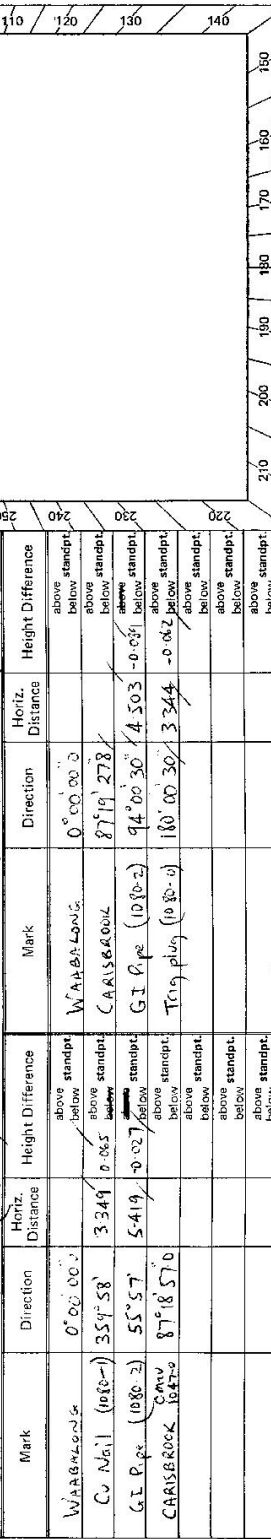 110 120 130 140
150
160
170
180
190
200
210
220
230
240
250
Mark Direction Horiz. Distance Height Difference
WAABALONG 0°00'00" above standpt. below
Cu Nail (1080-1) 359°58' 3.349 0.065 above standpt. below
GI Pipe (1080-2) 55°57' 5.419 -0.027 above standpt. below
CARISBROOK 1047-0 87°18'57.0 above standpt. below
above standpt. below
above standpt. below
above standpt. below
Mark Direction Horiz. Distance Height Difference
WAABALONG 0°00'00.0 above standpt. below
CARISBROOK 87°19'27.8 above standpt. below
GI Pipe (1080-2) 94°00'30" 4.503 -0.091 above standpt. below
Trig plug (1080-0) 180°00'30 3.344 -0.062 above standpt. below
above standpt. below
above standpt. below
above standpt. below